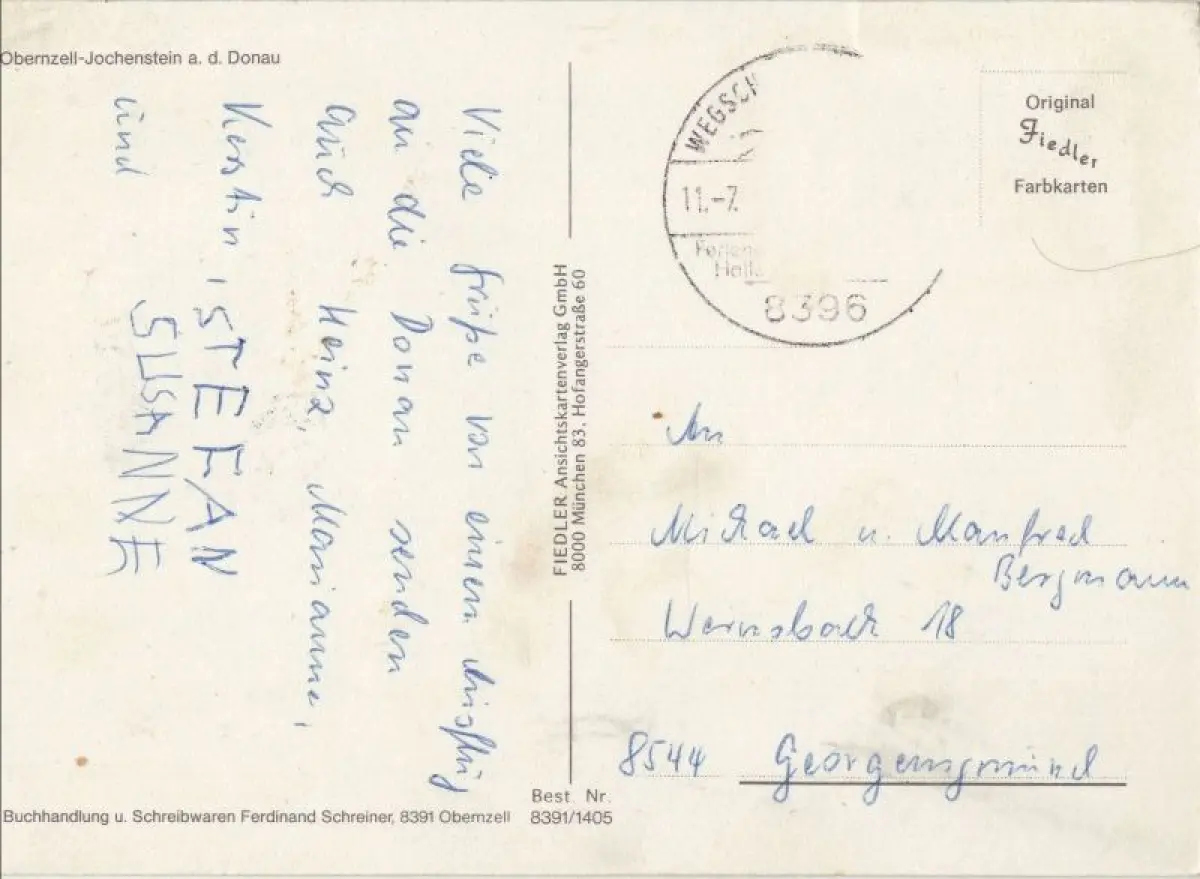 Obernzell-Jochenstein a. d. Donau
Viele Grüße von einem Ausflug
an die Donau senden
auch Heinz, Marianne,
Kerstin, STEFAN
und SUSANNE
FIEDLER Ansichtskartenverlag GmbH
8000 München 83, Hofangerstraße 60
WEGSCH
11.-7.
Ferien
8396
Original
Fiedler
Farbkarten
An
Michael u. Manfred
Bergmann
Wernsbach 18
8544 Georgensgmünd
Best. Nr.
8391/1405
Buchhandlung u. Schreibwaren Ferdinand Schreiner, 8391 Obernzell